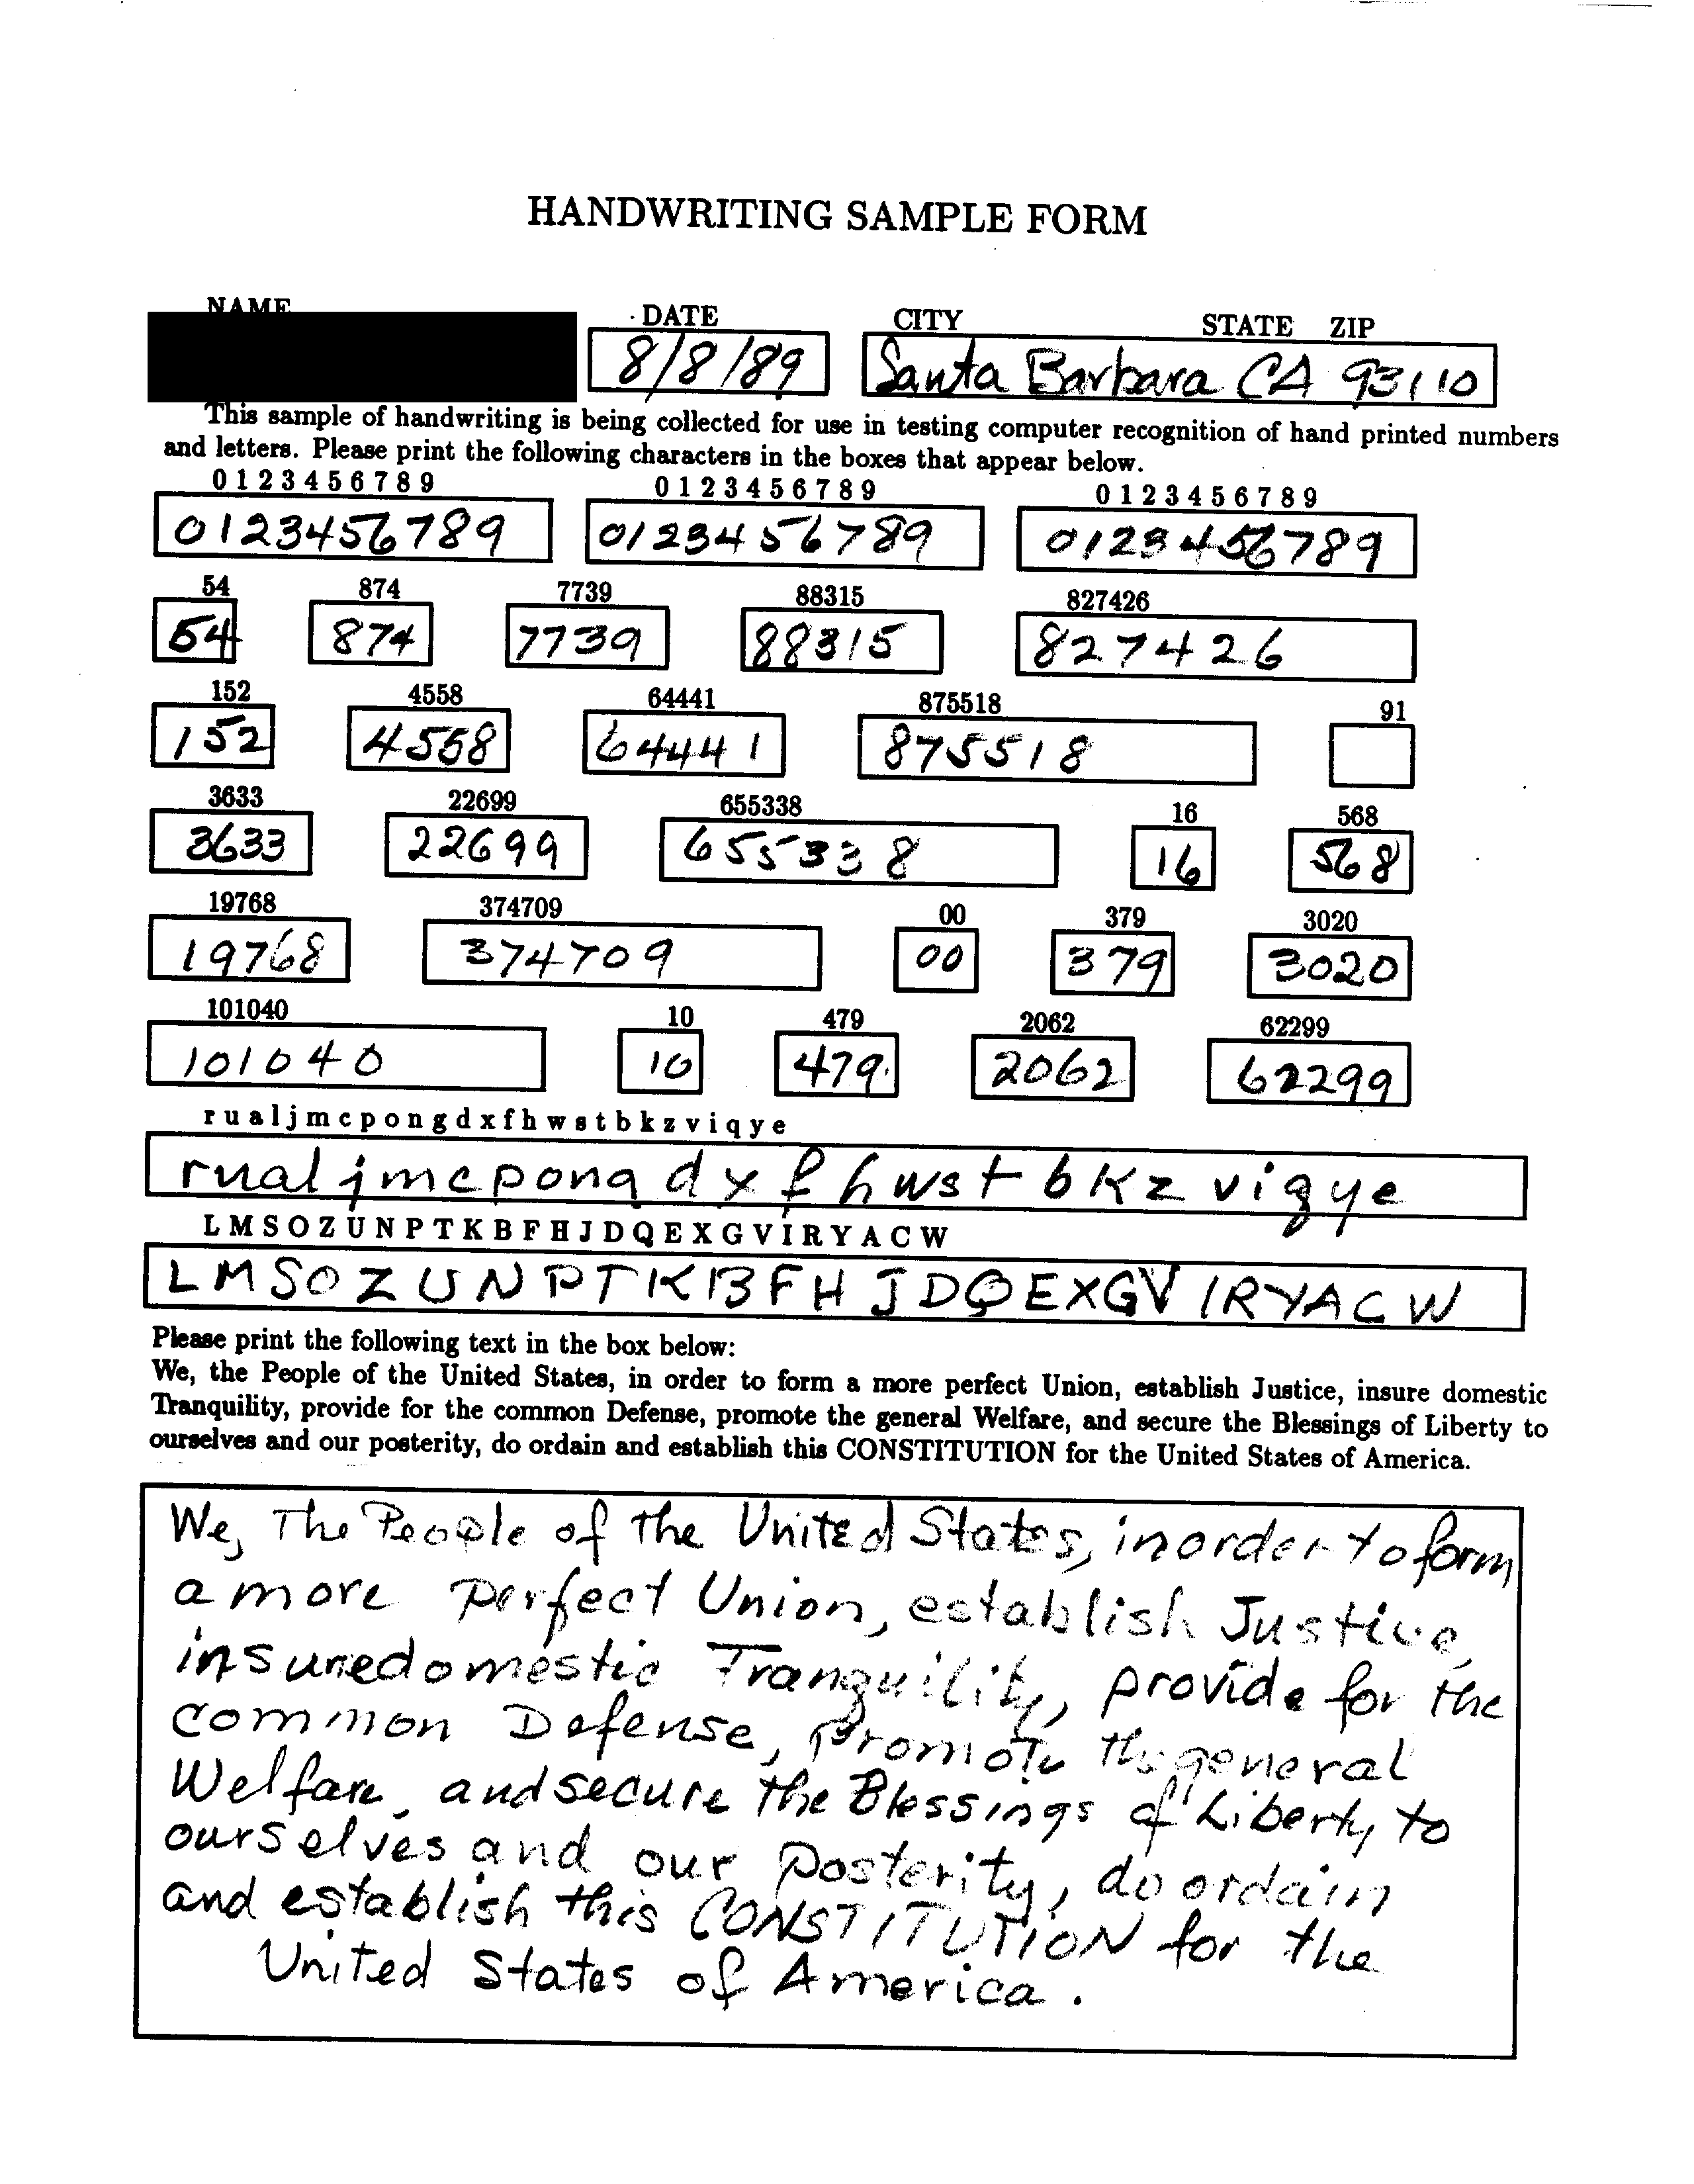 HANDWRITING SAMPLE FORM
NAME DATE CITY STATE ZIP
8/8/89 Santa Barbara CA 93110
This sample of handwriting is being collected for use in testing computer recognition of hand printed numbers
and letters. Please print the following characters in the boxes that appear below.
0 1 2 3 4 5 6 7 8 9 0 1 2 3 4 5 6 7 8 9 0 1 2 3 4 5 6 7 8 9
0123456789 0123456789 0123456789
54 874 7739 88315 827426
54 874 7739 88315 827426
152 4558 64441 875518 91
152 4558 64441 875518
3633 22699 655338 16 568
3633 22699 655338 16 568
19768 374709 00 379 3020
19768 374709 00 379 3020
101040 10 479 2062 62299
101040 10 479 2062 62299
r u a l j m c p o n g d x f h w s t b k z v i q y e
r u a l j m c p o n g d x f h w s t b k z v i q y e
L M S O Z U N P T K B F H J D Q E X G V I R Y A C W
L M S O Z U N P T K B F H J D Q E X G V I R Y A C W
Please print the following text in the box below:
We, the People of the United States, in order to form a more perfect Union, establish Justice, insure domestic
Tranquility, provide for the common Defense, promote the general Welfare, and secure the Blessings of Liberty to
ourselves and our posterity, do ordain and establish this CONSTITUTION for the United States of America.
We, The People of the United States, in order to form
a more perfect Union, establish Justice,
insure domestic Tranquility, provide for the
common Defense, promote the general
Welfare, and secure the Blessings of Liberty to
ourselves and our posterity, do ordain
and establish this CONSTITUTION for the
United States of America.